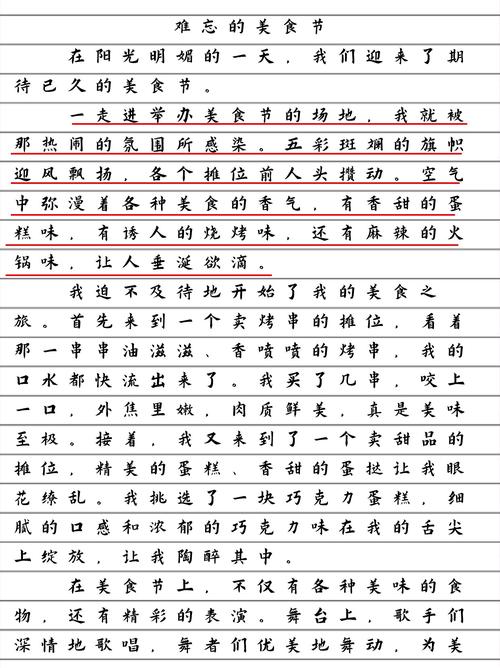 难忘的美食节
在阳光明媚的一天，我们迎来了期
待已久的美食节。
一走进举办美食节的场地，我就被
那热闹的氛围所感染。五彩斑斓的旗帜
迎风飘扬，各个摊位前人头攒动。空气
中弥漫着各种美食的香气，有香甜的蛋
糕味，有诱人的烧烤味，还有麻辣的火
锅味，让人垂涎欲滴。
我迫不及待地开始了我的美食之
旅。首先来到一个卖烤串的摊位，看着
那一串串油滋滋、香喷喷的烤串，我的
口水都快流出来了。我买了几串，咬上
一口，外焦里嫩，肉质鲜美，真是美味
至极。接着，我又来到了一个卖甜品的
摊位，精美的蛋糕、香甜的蛋挞让我眼
花缭乱。我挑选了一块巧克力蛋糕，细
腻的口感和浓郁的巧克力味在我的舌尖
上绽放，让我陶醉其中。
在美食节上，不仅有各种美味的食
物，还有精彩的表演。舞台上，歌手们
深情地歌唱，舞者们优美地舞动，为美